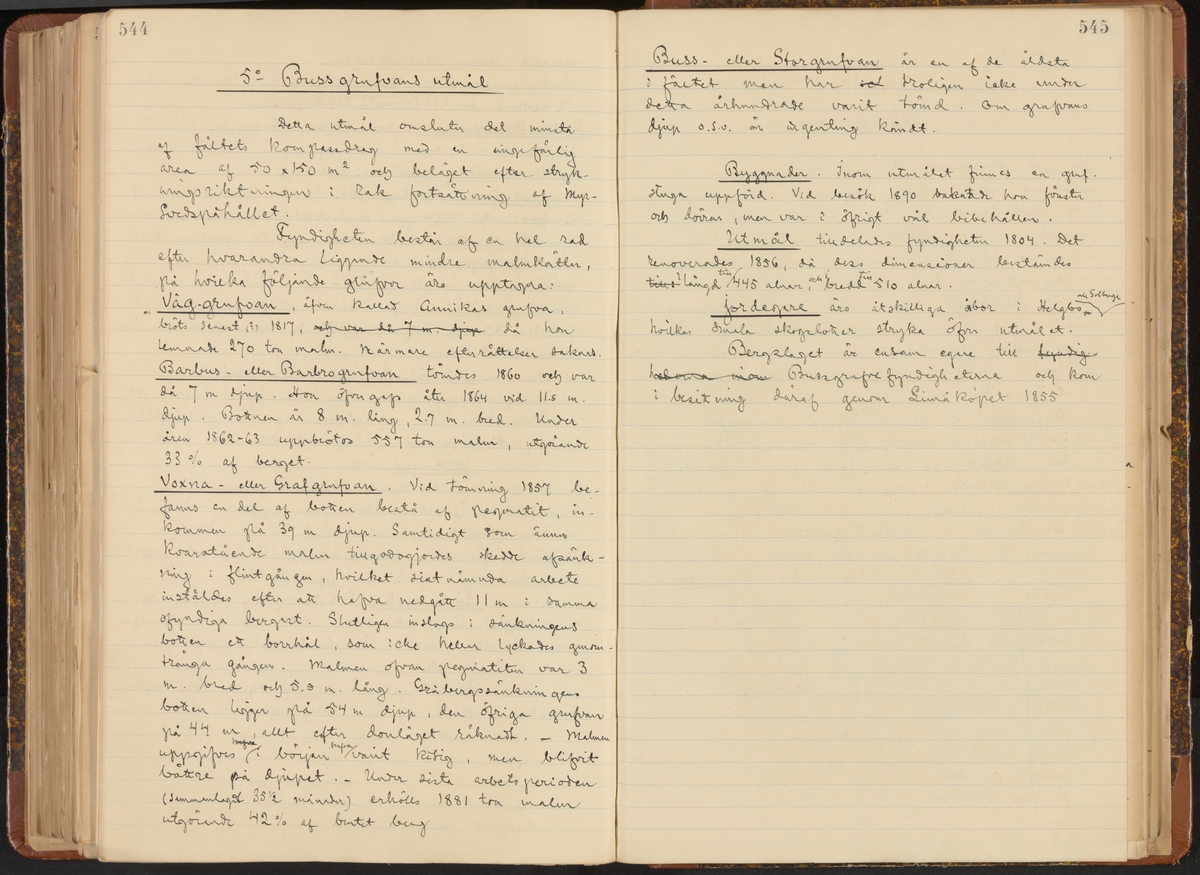 544
5º Bussgrufvans utmål
Detta utmål omsluter det minsta
af fältets kompassdrag med en ungefärlig
area af 50 x 150 m² och beläget efter stryk-
ningsriktningen i rak fortsättning af Myr-
Svedspähållet.
Fyndigheten består af en hel rad
efter hvarandra liggande mindre malmkörtlar,
på hvilka följande grufvor äro upptagna:
Våg-grufvan, äfven kallad Annikas grufva,
bröts senast (?) 1817, och var då 7 m. djup då hon
lemnade 270 ton malm. Närmare efterrättelser saknas.
Barbus- eller Barbrogrufvan tömdes 1860 och var
då 7 m djup. Hon öfvergafs åter 1864 vid 11.5 m.
djup. Bottnen är 8 m. lång, 2.7 m. bred. Under
åren 1862-63 uppbrötos 557 ton malm, utgörande
33 % af berget.
Voxna- eller Grafgrufvan. Vid tömning 1857 be-
fanns en del af botten bestå af pegmatit, in-
kommen på 39 m djup. Samtidigt som ännu
kvarstående malm tillgodogjordes skedde afsänk-
ning i flintgången, hvilket sistnämnda arbete
inställdes efter att hafva nedgått 11 m i samma
ofyndiga bergart. Slutligen inslogs i sänkningens
botten ett borrhål, som icke heller lyckades genom-
tränga gången. Malmen ofvan pegmatiten var 3
m. bred och 5.9 m. lång. Gråbergssänkningens
botten ligger på 54 m djup, den öfriga grufvan
på 44 m, allt efter donläget räknadt. – Malmen
uppgifves i början hafva varit kisig, men blifvit
bättre på djupet. – Under sista arbetsperioden
(sammanlagdt 35½ månader) erhölls 1881 ton malm
utgörande 42% af brutet berg
545
Buss- eller Storgrufvan är en af de äldsta
i fältet men har troligen icke under
detta århundrade varit tömd. Om grufvans
djup o.s.v. är ingenting kändt.
Byggnader. Inom utmålet finnes en gruf-
stuga uppförd. Vid besök 1890 saknade hon fönster
och dörrar, men var i öfrigt väl bibehållen.
Utmål tilldelades fyndigheten 1804. Det
renoverades 1856, då dess dimensioner bestämdes
till i längd till 445 alnar, och i bredd till 510 alnar.
Jordegare äro åtskilliga åbor i Helgbo och Sollunge
hvilkas smala skogslotter stryka öfver utmålet.
Bergslaget är ensam egare till fyndig-
heterna inom Bussgrufvefyndigheterna och kom
i besittning däraf genom Limåköpet 1855